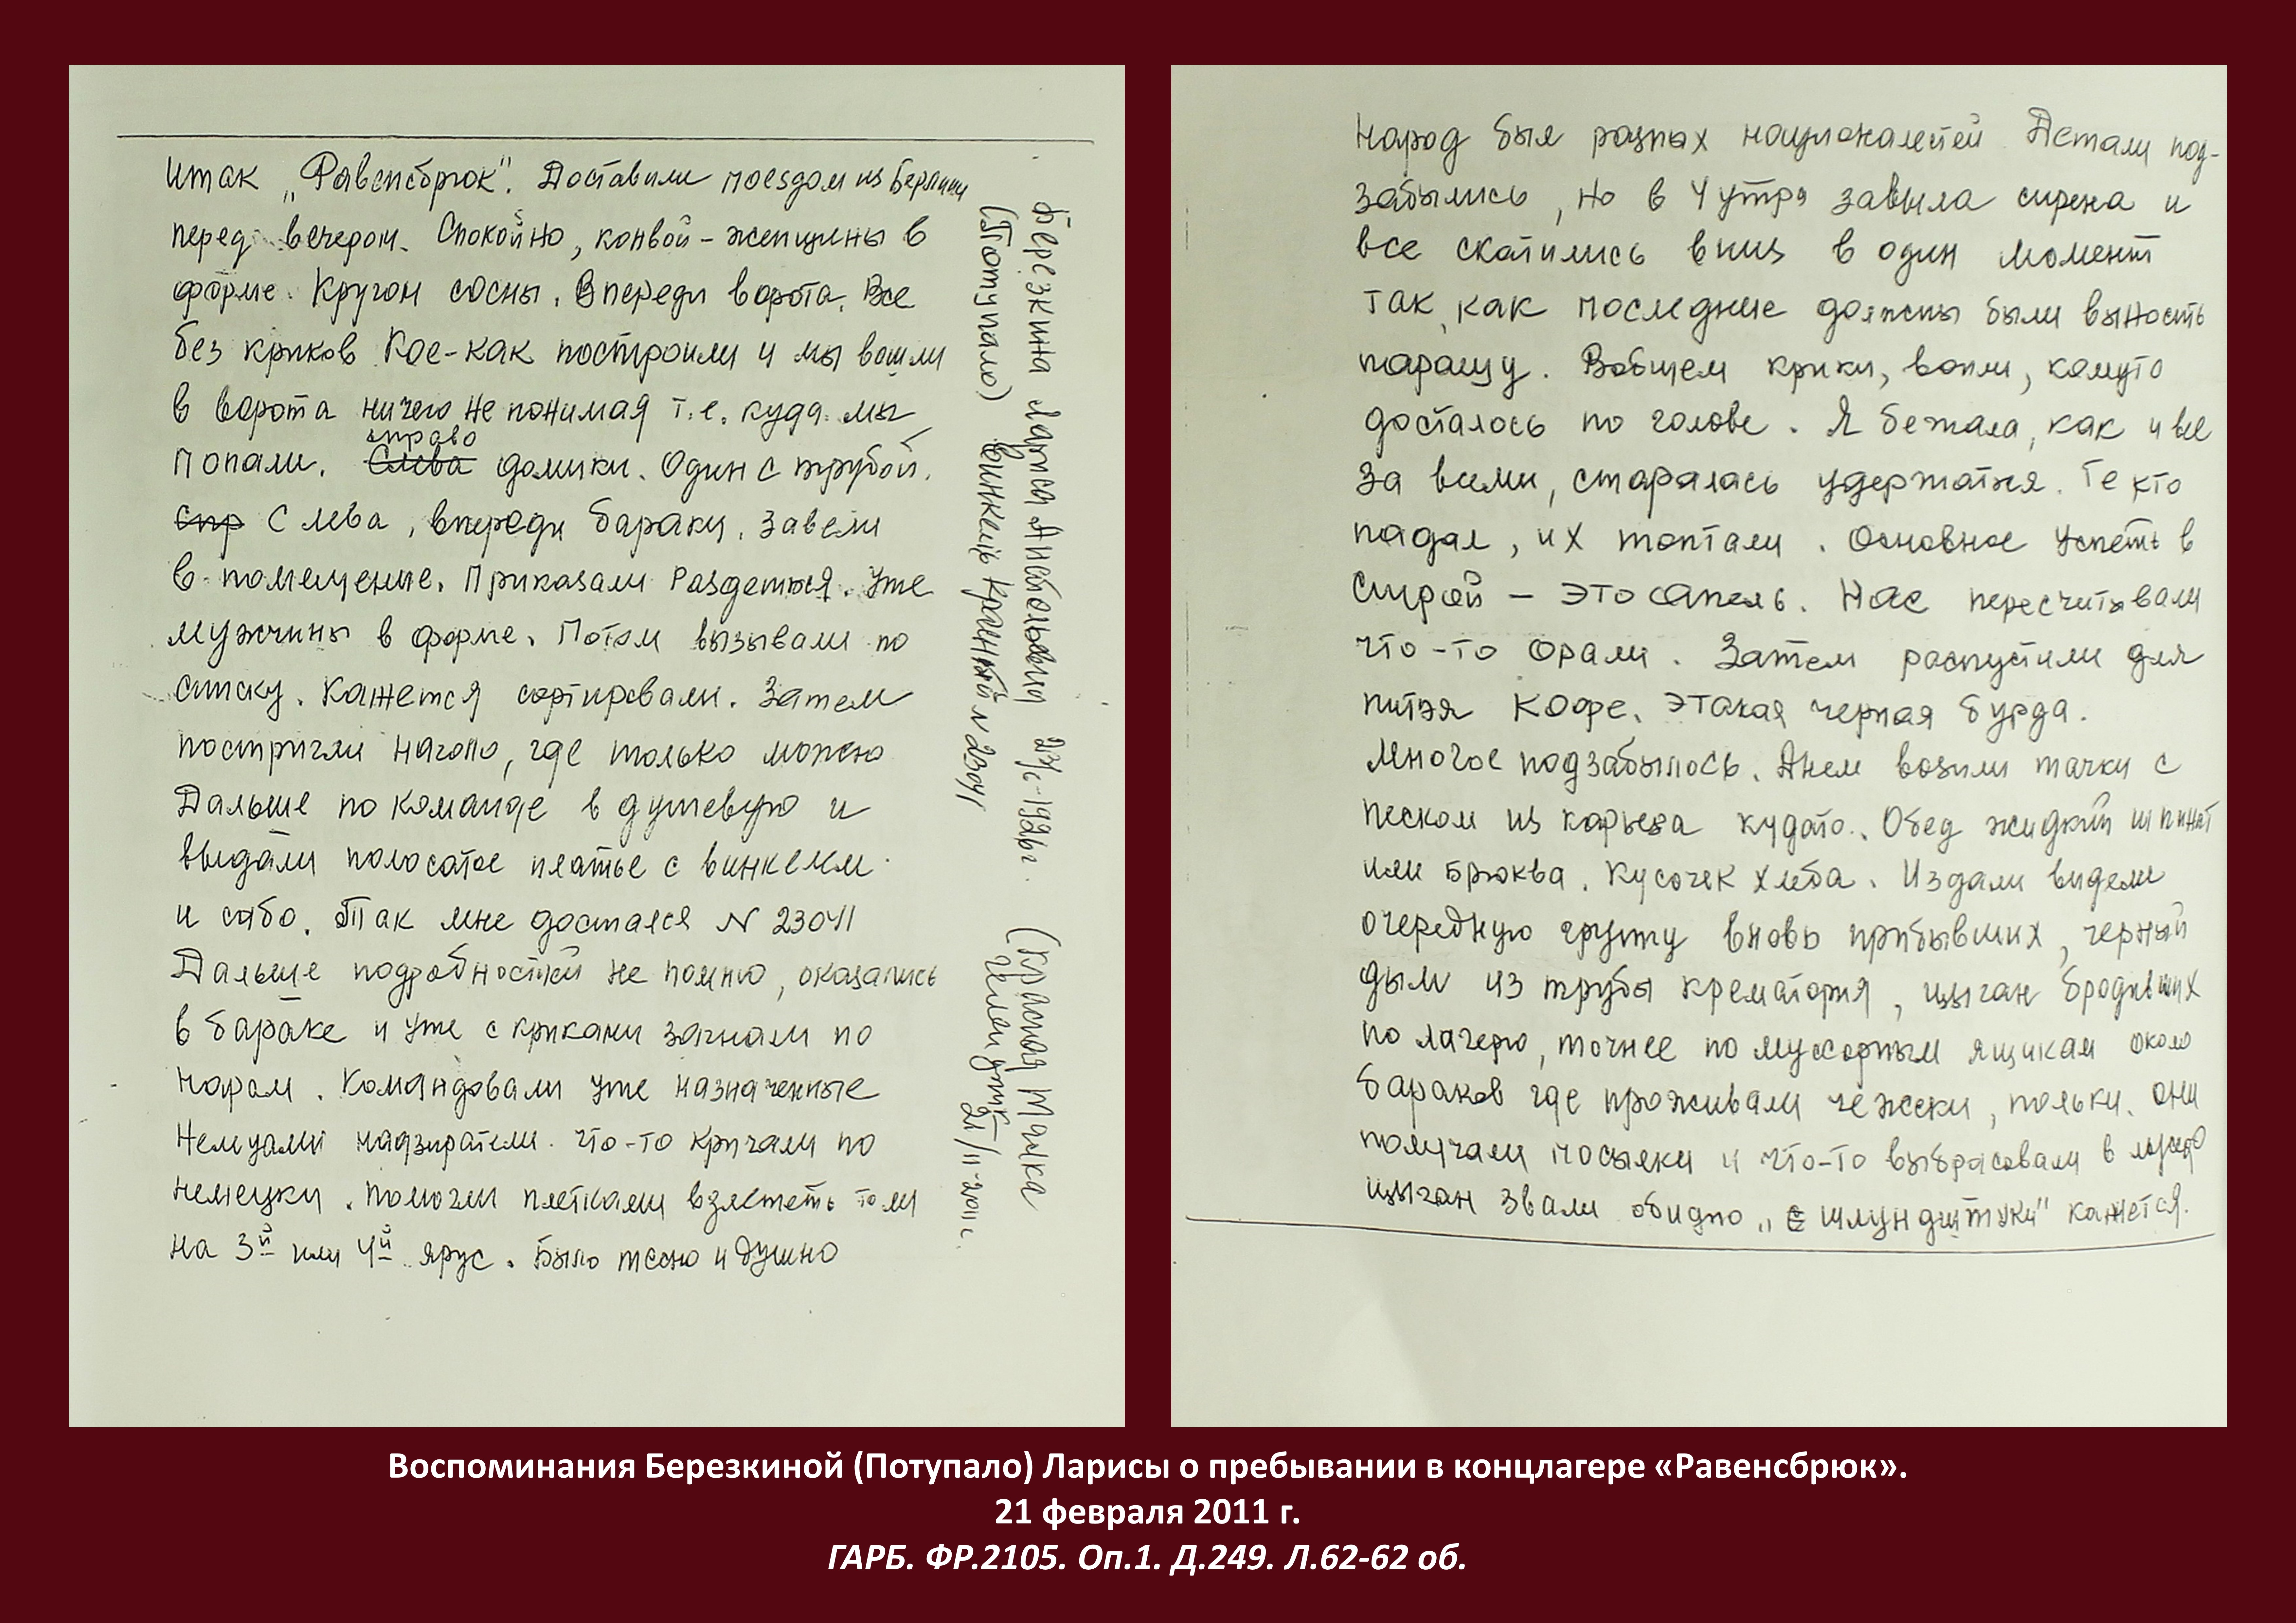 Итак „Равенсбрюк". Доставили поездом из Берлина
перед вечером. Спокойно, конвой - женщины в
форме. Кругом сосны. Впереди ворота. Все
без криков Кое-как построили и мы вошли
в ворота ничего не понимая т.е. куда мы
справо
попали. Слева домики. Один с трубой.
спр С лева, впереди бараки. Завели
в помещение. Приказали Раздеться. Уже
мужчины в форме. Потом вызывали по
списку. Кажется сортировали. Затем
постригли наголо, где только можно
Дальше по команде в душевую и
выдали полосатое платье с винкелем
и сабо. Так мне достался N 23041
Дальше подробностей не помню, оказались
в бараке и уже с криками загнали по
нарам. Командовали уже назначенные
Немцами надзиратели. Что-то кричали по
немецки. Помогли плетками взлететь то ли
на 3й или 4й ярус. Было тесно и душно
Березкина Лариса Анатольевна 1926г. (Красная
(Потупало) винкель красный N 23041
21/II-2011г.
Народ был разных национальностей Детали под-
забылись, но в 4 утра завыла сирена и
все скатились вниз в один момент
так, как последние должны были выность
парашу. Вобщем крики, вопли, комуто
досталось по голове. Я бежала, как и все
за всеми, старалась удержаться. Те кто
падал, их топтали. Основное успеть в
строй – это сапель. Нас пересчитывали
что-то орали. Затем распустили для
питья кофе. Этакая черная бурда.
Многое подзабылось. Днем возили тачки с
песком из карьера кудато. Обед жидкий шпинат
или брюква. Кусочек хлеба. Издали видели
очередную группу вновь прибывших, черный
дым из трубы крематория, цыган бродивших
по лагерю, точнее по мусорным ящикам около
бараков где проживали чежски, польки. они
получали посылки и что-то выбрасовали в
цыган звали обидно „с шлундштуки" кажется.
Воспоминания Березкиной (Потупало) Ларисы о пребывании в концлагере «Равенсбрюк».
21 февраля 2011 г.
ГАРБ. ФР.2105. Оп.1. Д.249. Л.62-62 об.